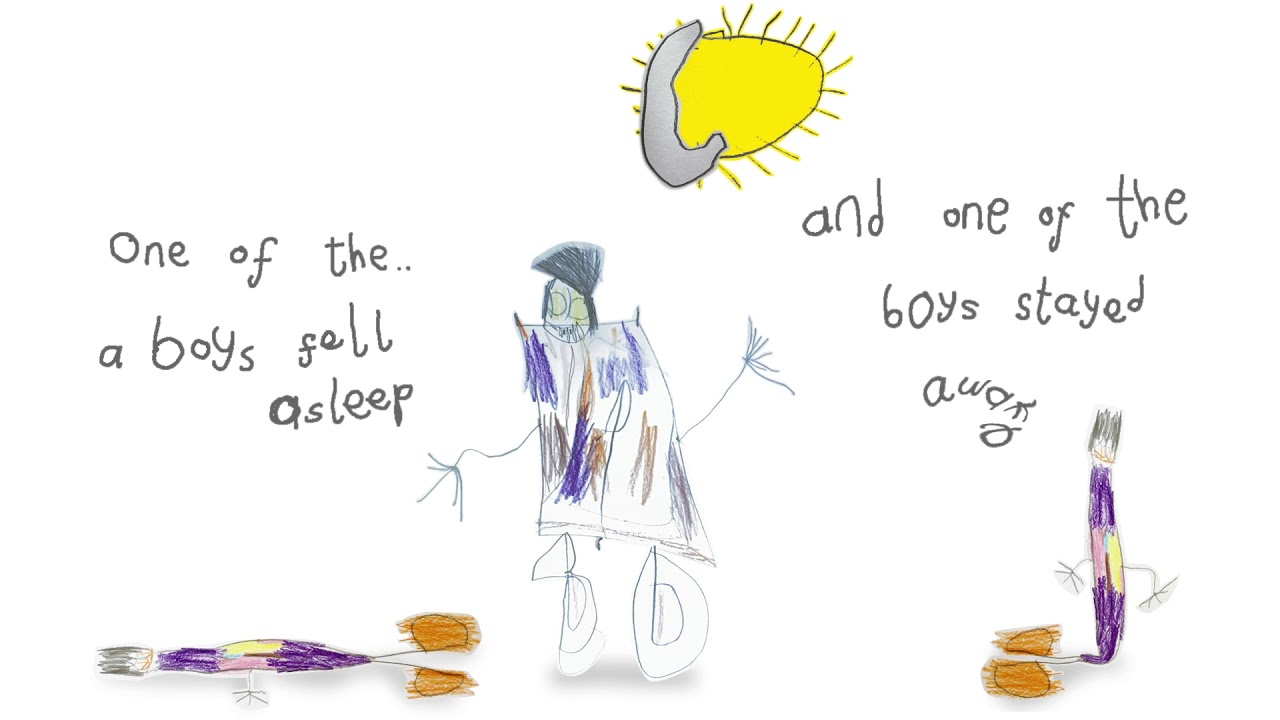 One of the..
a boys fell
asleep
and one of the
boys stayed
awak